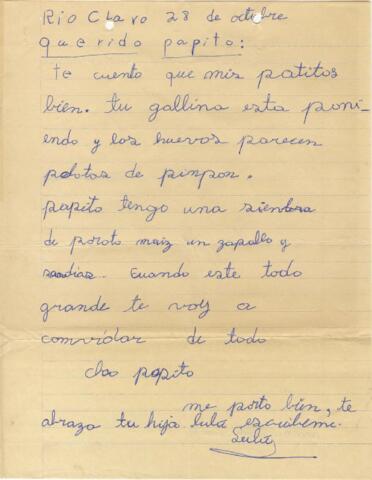 Rio Claro 28 de octubre
querido papito:
te cuento que mis patitos
bien. tu gallina esta poni-
endo y los huevos parecen
pelotas de pinpon.
papito tengo una siembra
de poroto maiz un zapallo y
sandias. Cuando este todo
grande te voy a
comvidar de todo
chao papito
me porto bien, te
abraza tu hija lulú escribeme.